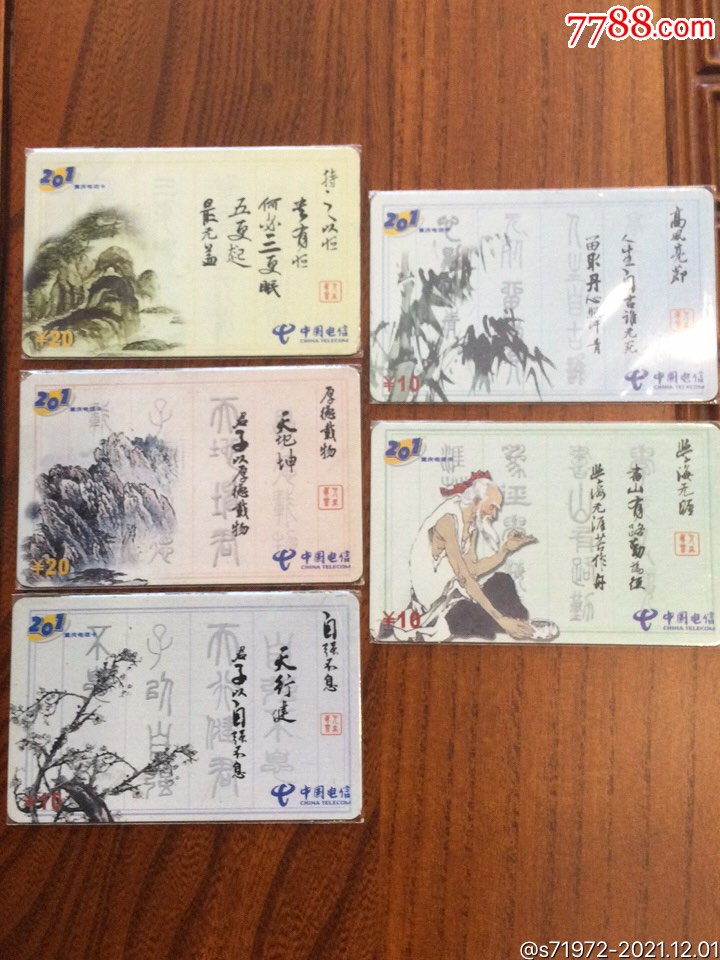 7788.com
201
重庆电话卡
持之以恒
贵有恒
何必三更眠
五更起
最无益
¥20
中国电信
CHINA TELECOM
201
重庆电话卡
高风亮节
人生自古谁无死
留取丹心照汗青
¥10
中国电信
CHINA TELECOM
201
重庆电话卡
厚德載物
天地坤
君子以厚德載物
¥20
中国电信
CHINA TELECOM
201
重庆电话卡
學海无涯
書山有路勤为径
學海无涯苦作舟
¥10
中国电信
CHINA TELECOM
201
重庆电话卡
自强不息
天行健
君子以自强不息
¥10
中国电信
CHINA TELECOM
@s71972-2021.12.01